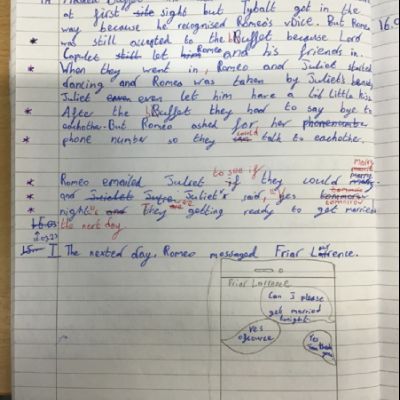 at first site sight but Tybalt got in the
way because he recognised Romeo's voice. But Romeo
was still accepted to the Buffet because Lord
Capulet still lot Romeo and his friends in.
When they went in, Romeo and Juliet started
dancing and Romeo was taken by Juliet's beauty
Juliet even even let him have a lid little kiss
After the Buffet they had to say bye to
eachother. But Romeo asked for her
phone number so they could talk to eachother.
to see if
Romeo emailed Juliet if they could marry
and Juliet's said, "Yes tomorrow
night" and They are getting ready to get married
the next day.
I The nexted day, Romeo messaged Friar Lawrence.
Friar Lorrance
Can I please
get married
tonight
Yes
ofcource
Yo
Thank
you